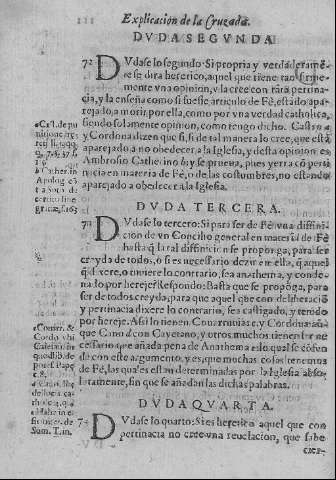 Explicacion de la Cruzada.
DVDA SEGVNDA
72 DVdase lo segundo: Si propria y verdaderamẽ-
se dira heretico, aquel que tiene tan firme
mente vna opinion, y la cree con tãta pertina-
cia, y la enseña como si fuesse articulo de Fè, estãdo apa-
rejado, a morir por ella, como por vna verdad catholica,
siendo solamente opinion, como tengo dicho. Castro, a
y Cordoua dizen que si, si de tal manera lo cree, que està
aparejado a no obedecer a la Iglesia, y desta opinion es
Ambrosio Catherino b: y se prueua, pues yerra cõ perti-
nacia en materia de Fè, o de las costumbres, no estando
aparejado a obedecer a la Iglesia.
a Cast. de
b Cather. in
Apolog.
DVDA TERCERA.
73 DVdase lo tercero: Si para ser de Fè vna diffini-
cion de vn Concilio general en materia de Fè
basta q̃ la tal diffinicion se proponga, para ser
creyda de todos, o si es necessario dezir en ella, q̃ aquel
q̃ dixere, o tuuiere lo contrario, sea anathema, y conde-
nado por hereje? Respondo: Basta que se propõga, para
ser de todos creyda; para que aquel que con deliberaciõ
y pertinacia dixere lo contrario, sea castigado, y tenido
por hereje. Assi lo tienen
que Cano d con Cayetano, y otros muchos tienen ser ne
cessario que añada pena de Anathema: e lo qual se cõfun
de con este argumento, y es, que muchas cosas tenemos
de Fè, las quales estan determinadas por la Iglesia abso-
lutamente, sin que se añadan dichas palabras.
Cordo. vbi
Caieta. in
quodlib. de
Sum. T. in.
DVDA QVARTA.
74 DVdase lo quarto: Si es heretico aquel que con
pertinacia no cree vna reuelacion, que sabe